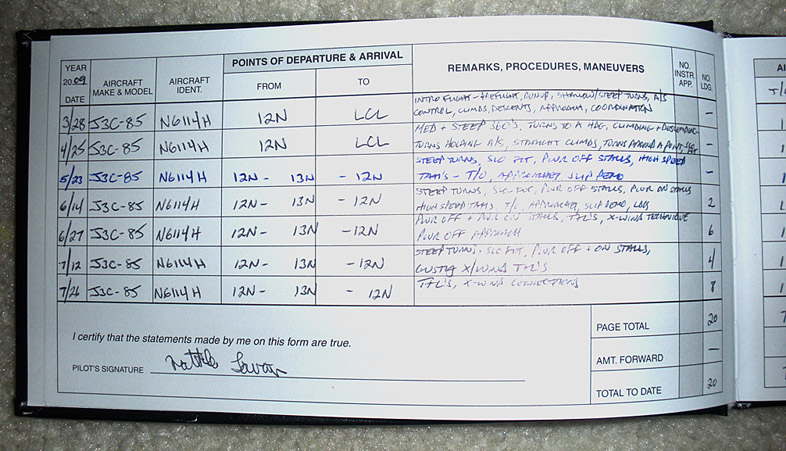 YEAR 2009 DATE AIRCRAFT MAKE & MODEL AIRCRAFT IDENT. POINTS OF DEPARTURE & ARRIVAL FROM TO REMARKS, PROCEDURES, MANEUVERS NO. INSTR. APP. NO. LDG.
INTRO FLIGHT - PREFLIGHT, RUNUP, SHALLOW/STEEP TURNS, A/S
3/28 J3C-85 N6114H 12N LCL CONTROL, CLIMBS, DESCENTS, APPROACH, COORDINATION —
MED + STEEP 360'S, TURNS TO A HDG, CLIMBING + DESCENDING
4/25 J3C-85 N6114H 12N LCL TURNS HOLDING A/S, STRAIGHT CLIMBS, TURNS AROUND A POINT —
STEEP TURNS, SLO FLT, PWR OFF STALLS, HIGH SPEED
5/23 J3C-85 N6114H 12N - 13N - 12N TAXI'S - T/O, APPROACHES, SLIP DEMO —
STEEP TURNS, SLO FLT, PWR OFF STALLS, PWR ON STALLS
6/14 J3C-85 N6114H 12N - 13N - 12N HIGH SPEED TAXIS, T/O, APPROACHES, SLIP DEMO, LDGS 2
PWR OFF + PWR ON STALLS, T+L'S, X-WIND TECHNIQUE
6/27 J3C-85 N6114H 12N - 13N - 12N PWR OFF APPROACH 6
STEEP TURNS, SLO FLT, PWR OFF + ON STALLS,
7/12 J3C-85 N6114H 12N - 13N - 12N GUSTY X/WIND T+L'S 4
7/26 J3C-85 N6114H 12N - 13N - 12N T+L'S, X-WIND CORRECTIONS 8
I certify that the statements made by me on this form are true.
PILOT'S SIGNATURE
PAGE TOTAL 20
AMT. FORWARD —
TOTAL TO DATE 20